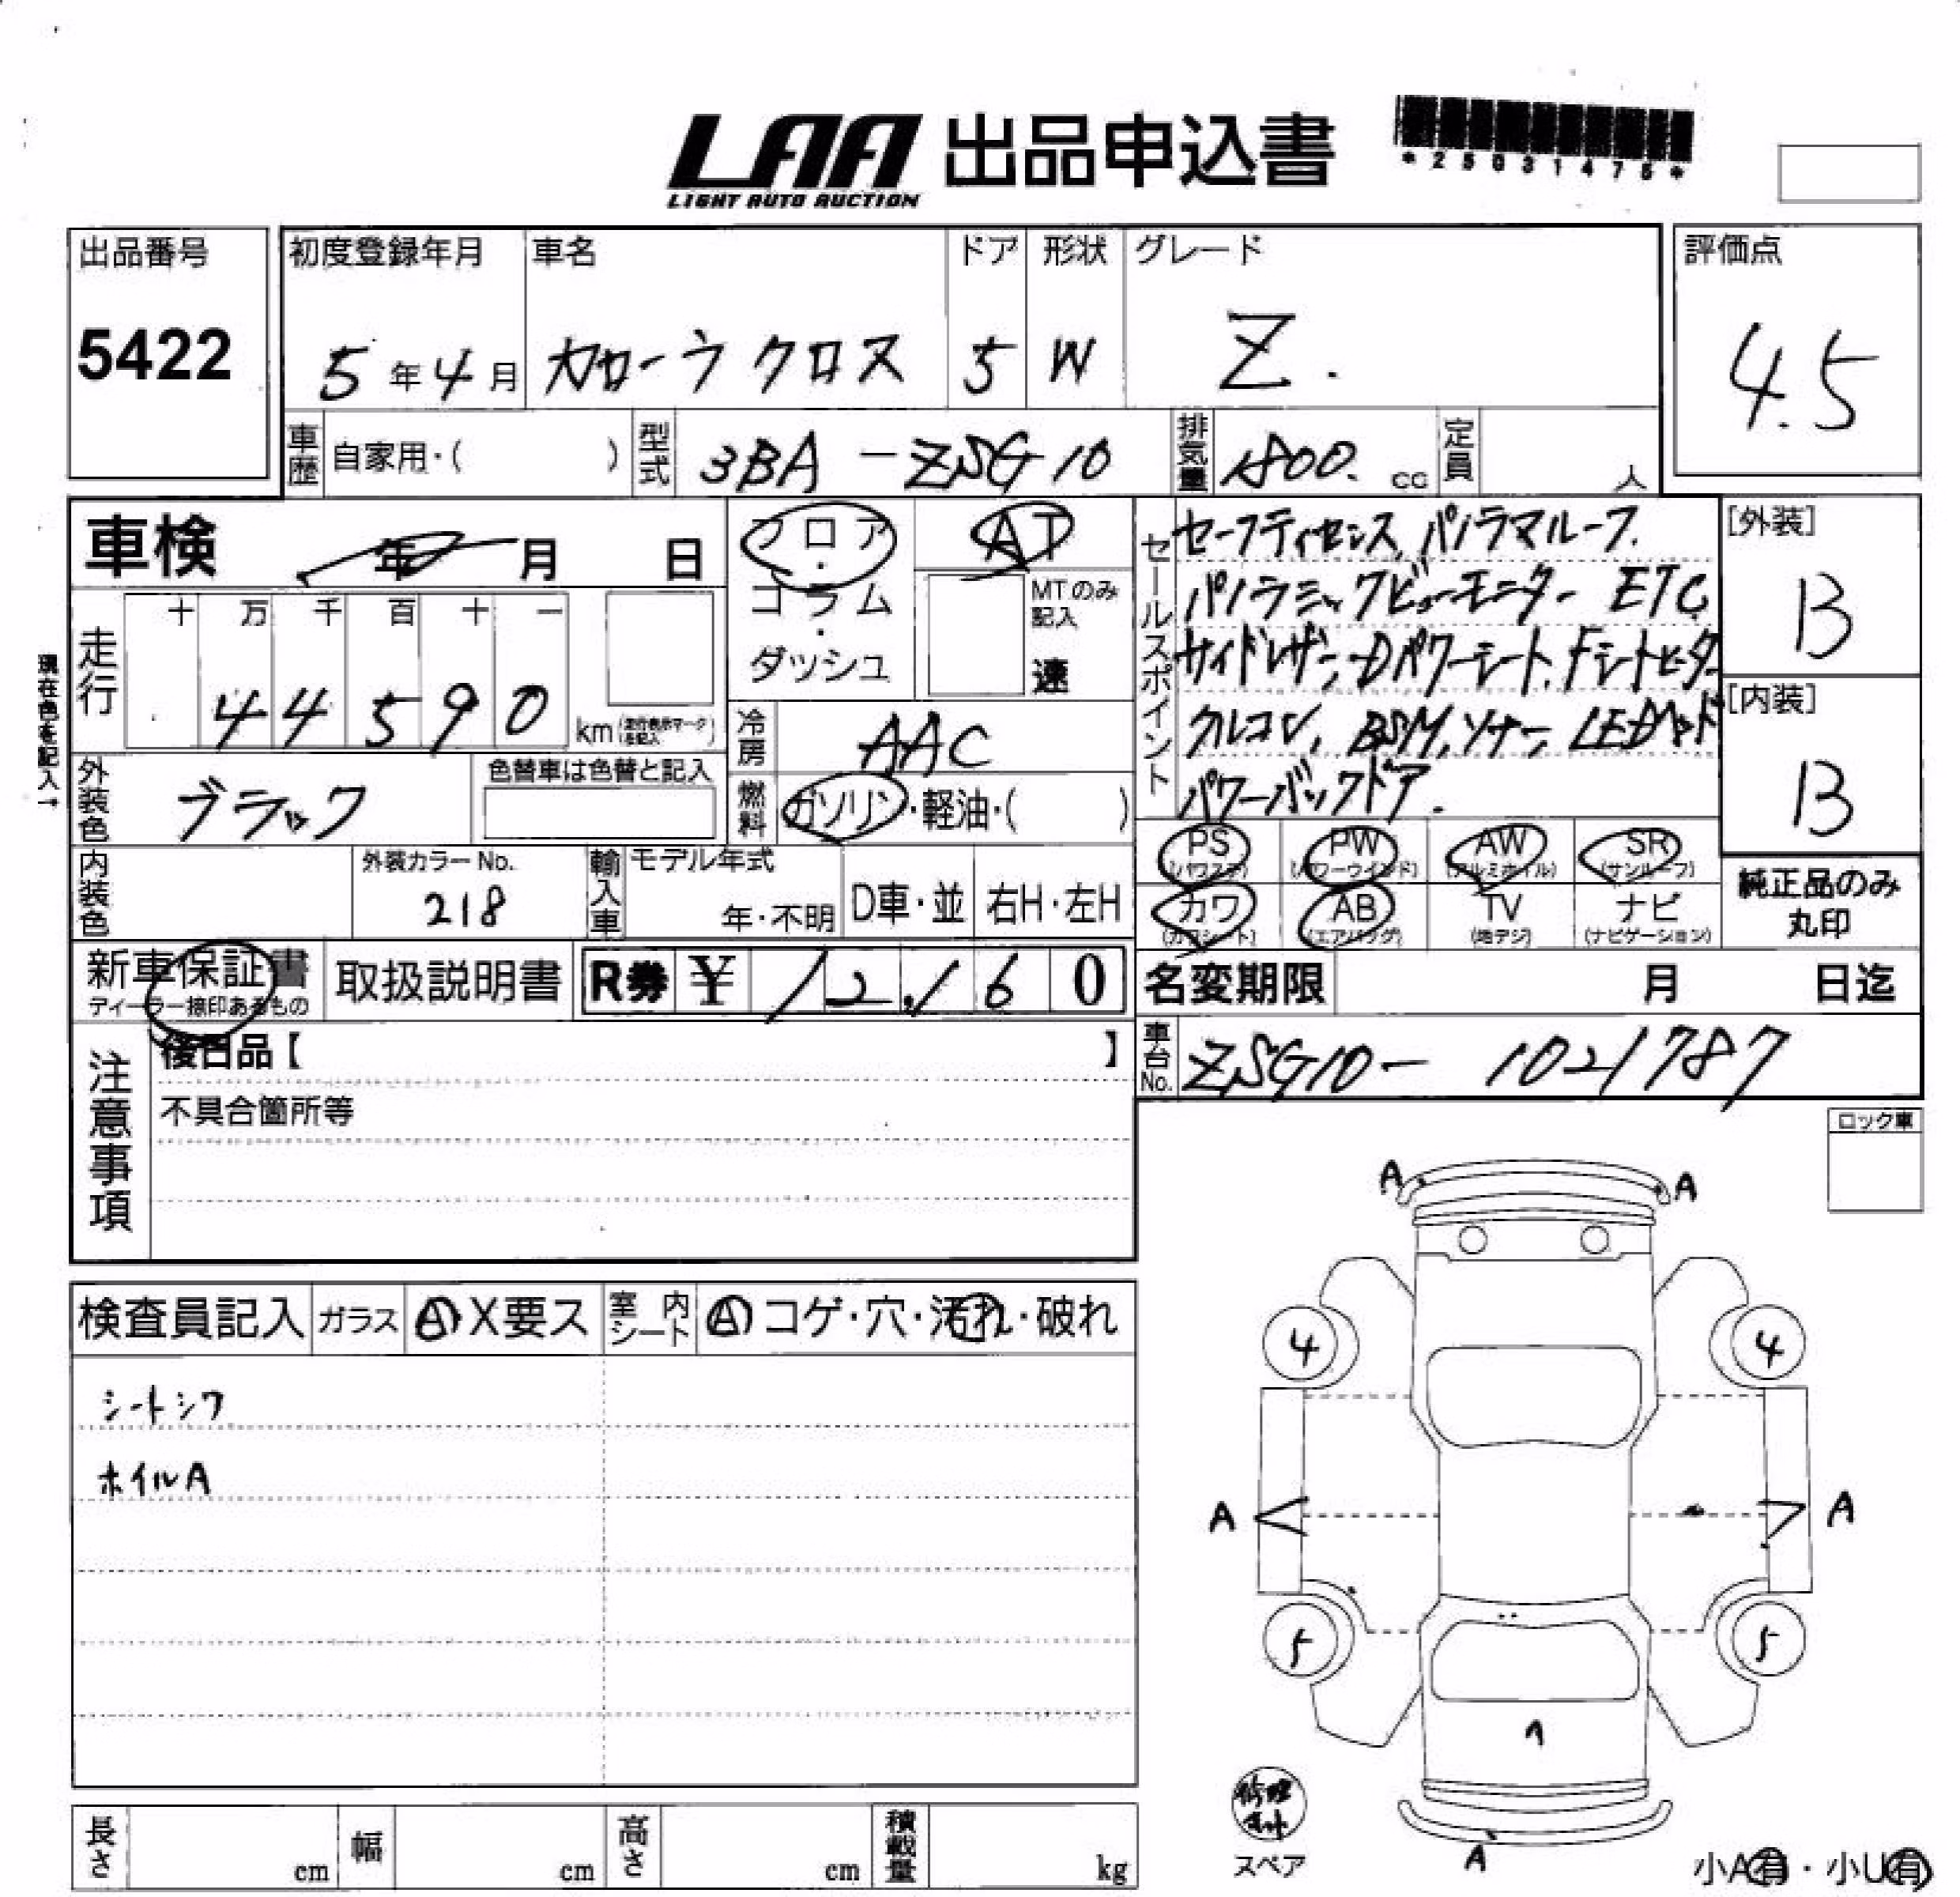 LAA 出品申込書
LIGHT AUTO AUCTION
*25031475*
出品番号
5422
初度登録年月
5年4月
車名
カローラクロス
ドア
5
形状
W
グレード
Z.
評価点
4.5
車歴 自家用・( )
型式 3BA-ZSG10
排気量 1800. cc
定員 人
車検 年 月 日
現在色を記入→
走行
十 万 千 百 十 一
44590 km
フロア・コラム・ダッシュ
AT
MTのみ記入
速
冷房 AAC
燃料 ガソリン・軽油・( )
外装色 ブラック
色替車は色替と記入
内装色
外装カラーNo.
218
輸入車
モデル年式
年・不明
D車・並
右H・左H
セールスポイント
セーフティセンス パノラマルーフ.
パノラミックビューモニター ETC
サイドレザー, Dパワーシート, Fシートヒーター
クルコン, BSM, ソナー, LEDヘッド
パワーバックドア.
[外装]
B
[内装]
B
PS (パワステ)
PW (パワーウインド)
AW (アルミホイル)
SR (サンルーフ)
カワ (カワシート)
AB (エアバッグ)
TV (地デジ)
ナビ (ナビゲーション)
純正品のみ
丸印
新車保証書
ディーラー捺印あるもの
取扱説明書
R券 ¥ 12,160
名変期限 月 日迄
車台No. ZSG10-1021787
注意事項
後日品【 】
不具合箇所等
ロック車
検査員記入
ガラス A X要ス
室内シート A コゲ・穴・汚れ・破れ
シートシワ
ホイルA
A A
4 4
A A
5 5
A
修理キット
スペア
小A有・小U有
長さ cm
幅 cm
高さ cm
積載量 kg